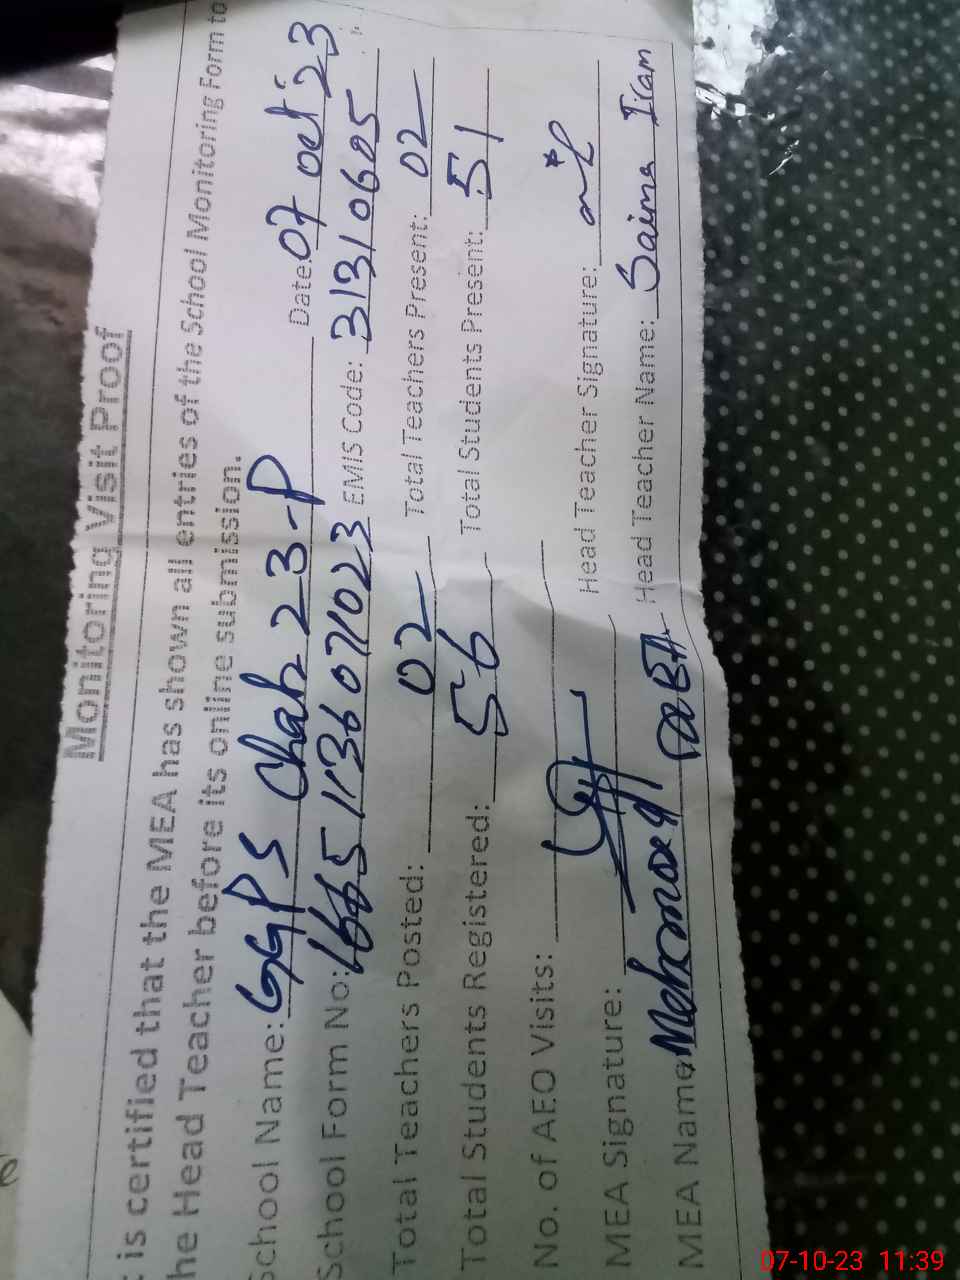 Monitoring Visit Proof
is certified that the MEA has shown all entries of the School Monitoring Form to
he Head Teacher before its online submission.
School Name: GGPS Chah 23-P Date: 07 oct 23
School Form No: 16651136071023 EMIS Code: 31310605
Total Teachers Posted: 02 Total Teachers Present: 02
Total Students Registered: 56 Total Students Present: 51
No. of AEO Visits:
MEA Signature: Head Teacher Signature:
MEA Name Head Teacher Name: Saima Iram
07-10-23 11:39